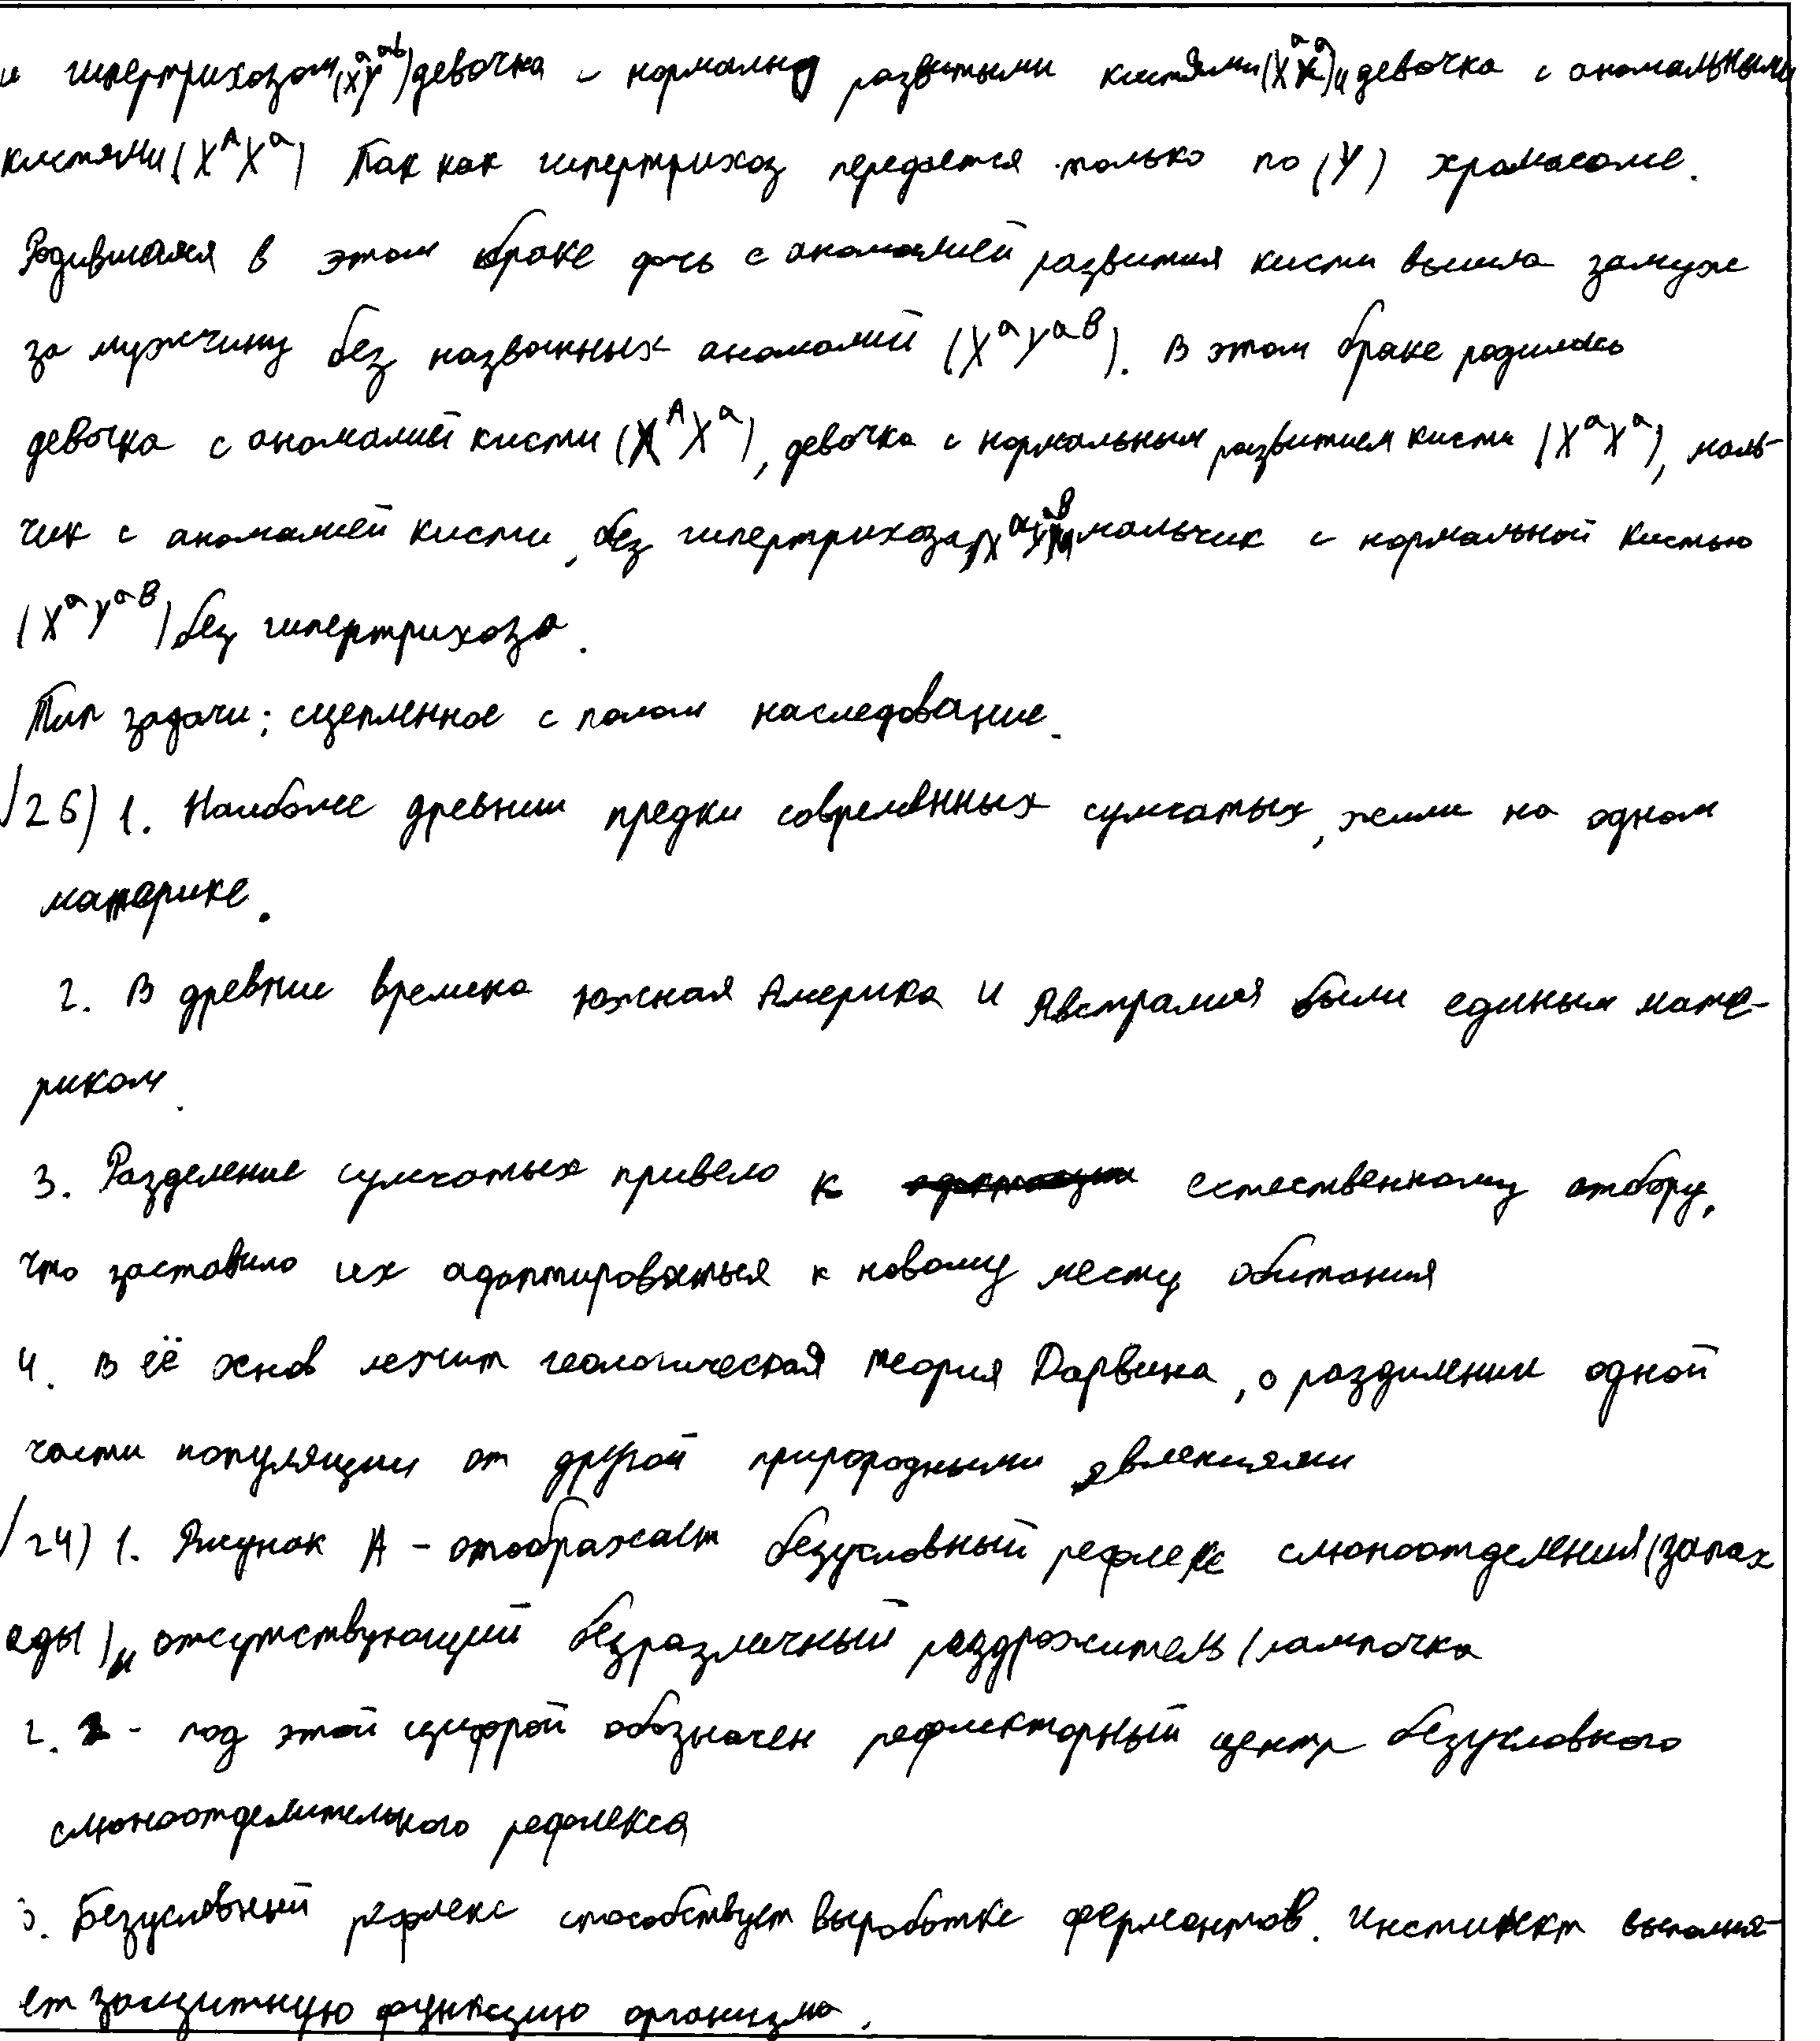 и гипертрихозом (X^aY^ab) девочка с нормально развитыми кистями (X^aX^a) и девочка с аномальными
кистями (X^AX^a) Так как гипертрихоз передается только по (Y) храмасоме.
Родившаяся в этом браке дочь с аномалией развития кисти вышла замуж
за мужчину без названных аномалий (X^aY^aB). В этом браке родилась
девочка с аномалией кисти (X^AX^a), девочка с нормальным развитием кисти (X^aX^a), маль-
чик с аномалией кисти, без гипертрихоза, мальчик с нормальной кистью
(X^aY^aB) без гипертрихоза.
Тип задачи: сцепленное с полом наследование.
√26) 1. Наиболее древнии предки совремнных сумчатых, жили на одном
материке.
2. В древние времена южная Америка и Австралия были единым мате-
риком.
3. Разделение сумчатых привело к естественному отбору,
что заставило их адаптироваться к новому месту обитания
4. В её основ лежит геологическая теория Дарвина, о раздилении одной
части популяции от другой прирородными явлениями
√24) 1. Рисунок А - отображает безусловный рефлекс слюноотделения (запах
еды) и отсутствующий безразличный раздрожитель (лампочка
2. 2 - под этой цифрой обозначен рефлекторный центр безусловного
слюноотделительного рефлекса
3. Безусловный рефлекс способствует выработке ферментов. Инстинкт выполня-
ет защитную функцию организма.